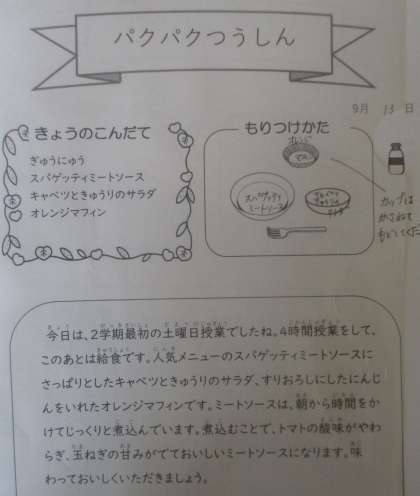 パクパクつうしん
9月 13 日
きょうのこんだて
ぎゅうにゅう
スパゲッティミートソース
キャベツときゅうりのサラダ
オレンジマフィン
もりつけかた
オレンジ
マフィン
スパゲッティ
ミートソース
キャベツと
きゅうりの
サラダ
カップは
かさねて
もどしてくだ
今日は、2学期最初の土曜日授業でしたね。4時間授業をして、
このあとは給食です。人気メニューのスパゲッティミートソースに
さっぱりとしたキャベツときゅうりのサラダ、すりおろしにしたにんじ
んをいれたオレンジマフィンです。ミートソースは、朝から時間をか
けてじっくりと煮込んでいます。煮込むことで、トマトの酸味がやわ
らぎ、玉ねぎの甘みがでておいしいミートソースになります。味
わっておいしくいただきましょう。